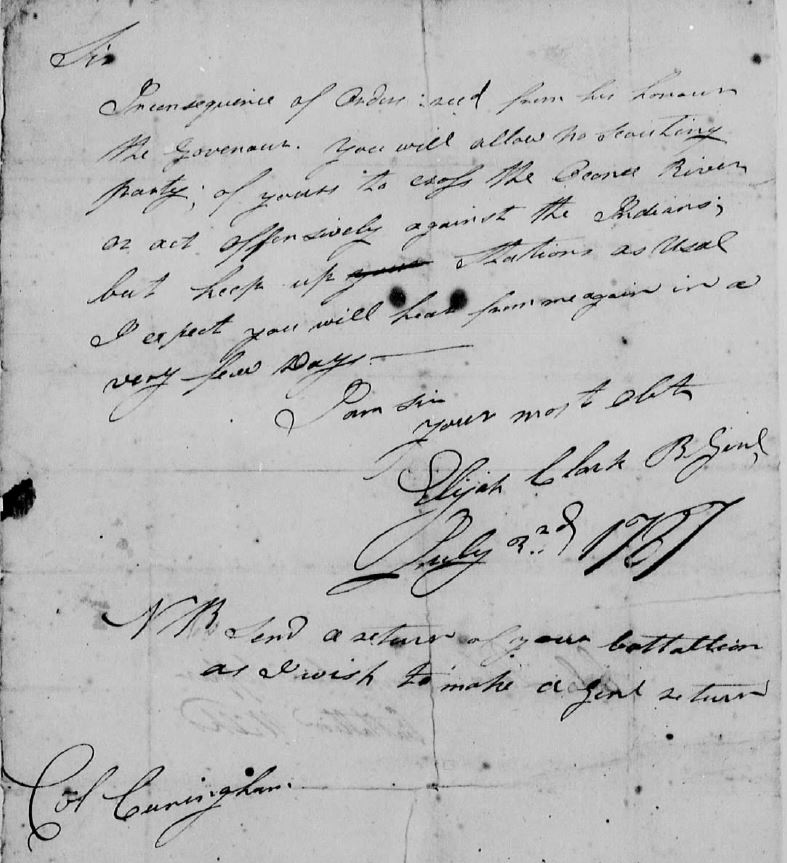 Sir
Inconsequence of Orders recd from his honour
the Govenour. You will allow no scouting
party; of yours to cross the Oconee River
or act offensively against the Indians;
but keep up your Stations as Usal
I expect you will hear from me again in a
very few Days —
I am Sir
your most Obt
Elijah Clark B Genl,
July 3rd 1787
NB Send a return of your battallion
as I wish to make a Genl return
Col Cuningham.